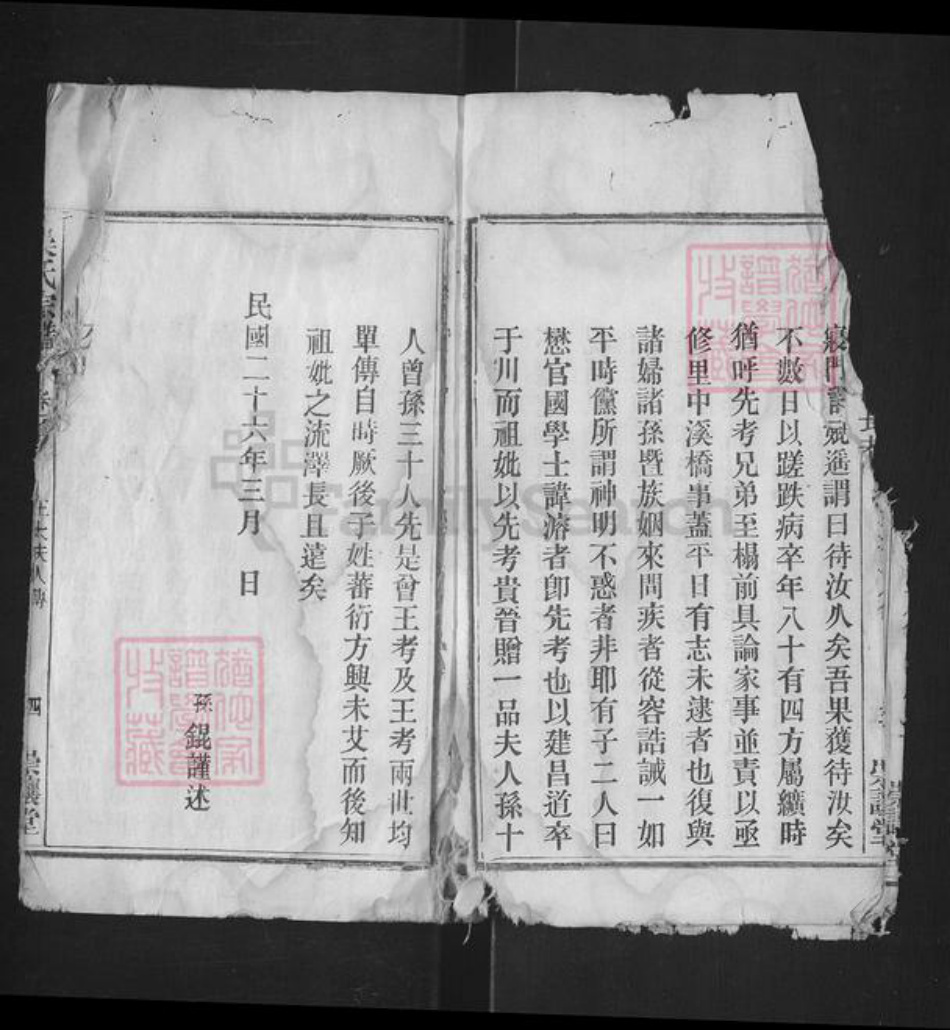 門訣遥謂曰待汝久矣吾果獲待汝矣
不數日以蹉跌病卒年八十有四方屬纊時
猶呼先考兄弟至榻前具論家事並責以亟
修里中溪橋事蓋平日有志未逮者也復與
諸婦諸孫暨族姻來問疾者從容誥誡一如
平時儻所謂神明不惑者非耶有子二人曰
懋官國學士諱濬者卽先考也以建昌道卒
于川而祖妣以先考貴晉贈一品夫人孫十
人曾孫三十人先是曾王考及王考兩世均
單傳自時厥後子姓蕃衍方興未艾而後知
祖妣之流澤長且遠矣
民國二十六年三月 日
孫 錕謹述
氏宗譜
太夫人傳
四
堂
FamilySearch